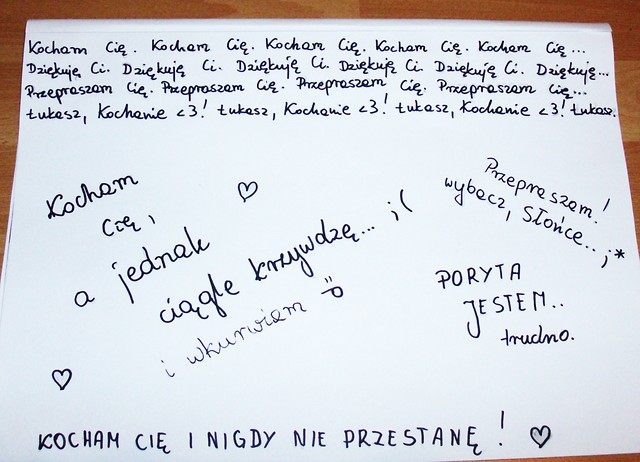 Kocham Cię. Kocham Cię. Kocham Cię. Kocham Cię. Kocham Cię...
Dziękuję Ci. Dziękuję Ci. Dziękuję Ci. Dziękuję Ci. Dziękuję Ci. Dziękuję...
Przepraszam Cię. Przepraszam Cię. Przepraszam Cię. Przepraszam Cię...
Łukasz, Kochanie <3! Łukasz, Kochanie <3! Łukasz, Kochanie <3! Łukasz.
Kocham
Cię,
a jednak
ciągle krzywdzę... ;(
i wkurwiam =P
Przepraszam!
wybacz, Słońce..;*
PORYTA
JESTEM..
trudno.
KOCHAM CIĘ I NIGDY NIE PRZESTANĘ!